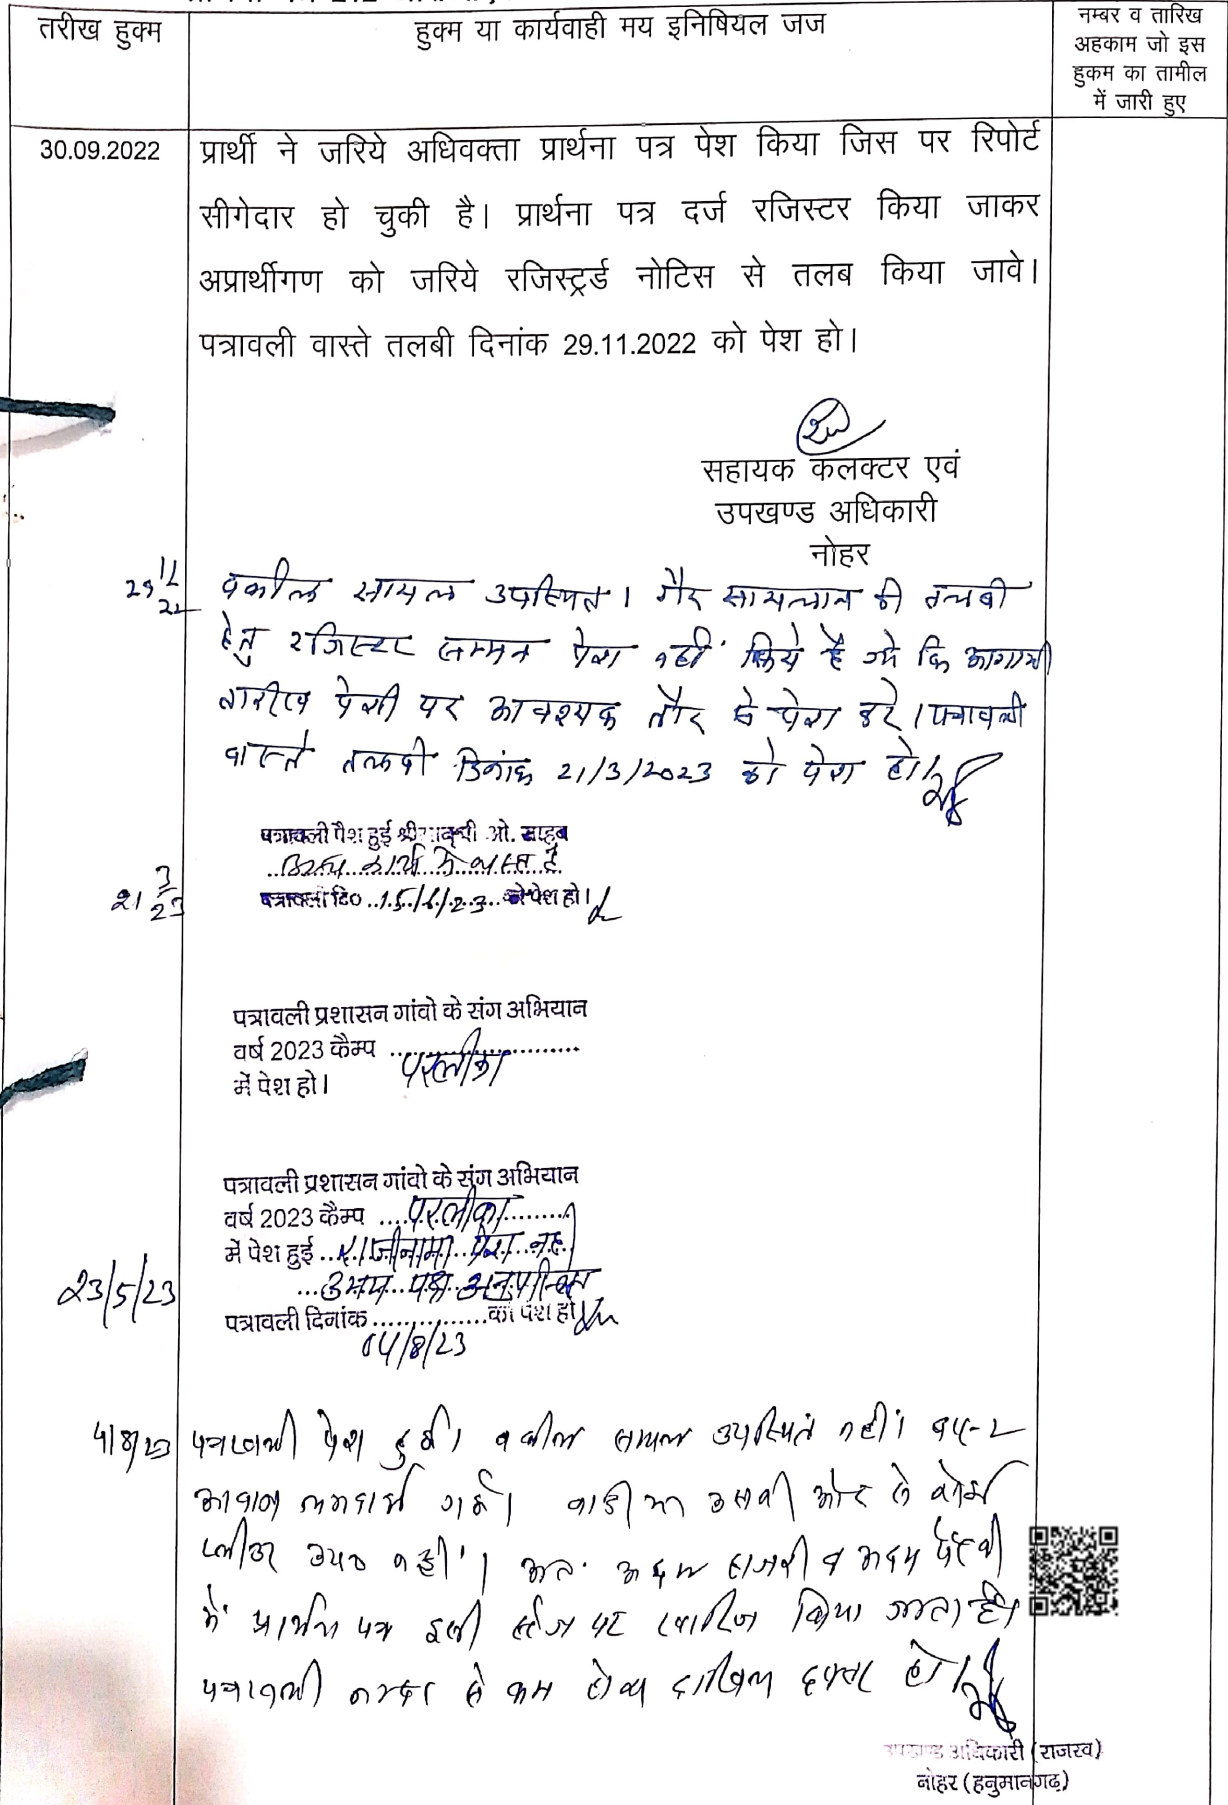 तरीख हुक्म
हुक्म या कार्यवाही मय इनिषियल जज
नम्बर व तारिख
अहकाम जो इस
हुकम का तामील
में जारी हुए
30.09.2022
प्रार्थी ने जरिये अधिवक्ता प्रार्थना पत्र पेश किया जिस पर रिपोर्ट
सीगेदार हो चुकी है। प्रार्थना पत्र दर्ज रजिस्टर किया जाकर
अप्रार्थीगण को जरिये रजिस्ट्रर्ड नोटिस से तलब किया जावे।
पत्रावली वास्ते तलबी दिनांक 29.11.2022 को पेश हो।
सहायक कलक्टर एवं
उपखण्ड अधिकारी
नोहर
29 11 22
वकील सायल उपस्थित। गैर सायलान की तलबी
हेतु रजिस्टर सम्मन पेश नहीं किये है जो कि आगामी
तारीख पेशी पर आवश्यक तौर से पेश करे। पत्रावली
वास्ते तलबी दिनांक 21/3/2023 को पेश हो।
21 3 23
पत्रावली पेश हुई श्री ओ. साहब
अन्य कार्य में व्यस्त है
पत्रावली दि० 15/6/23 को पेश हो।
पत्रावली प्रशासन गांवो के संग अभियान
वर्ष 2023 कैम्प परलीका
में पेश हो।
पत्रावली प्रशासन गांवो के संग अभियान
वर्ष 2023 कैम्प परलीका
में पेश हुई राजीनामा पेश नहीं
23/5/23
उभय पक्ष अनुपस्थित
पत्रावली दिनांक को पेश हो
04/8/23
4/8/23
पत्रावली पेश हुई। वकील सायल उपस्थित नहीं।
आवाज लगवाई गई। वादी या उसकी ओर से कोई
प्लीडर उप० नहीं। अतः अदम हाजरी व अदम पैरवी
में प्रार्थना पत्र इसी स्टेज पर खारिज किया जाता है।
पत्रावली नम्बर से कम होकर दाखिल दफ्तर हो।
उपखण्ड अधिकारी (राजस्व)
नोहर (हनुमानगढ़)